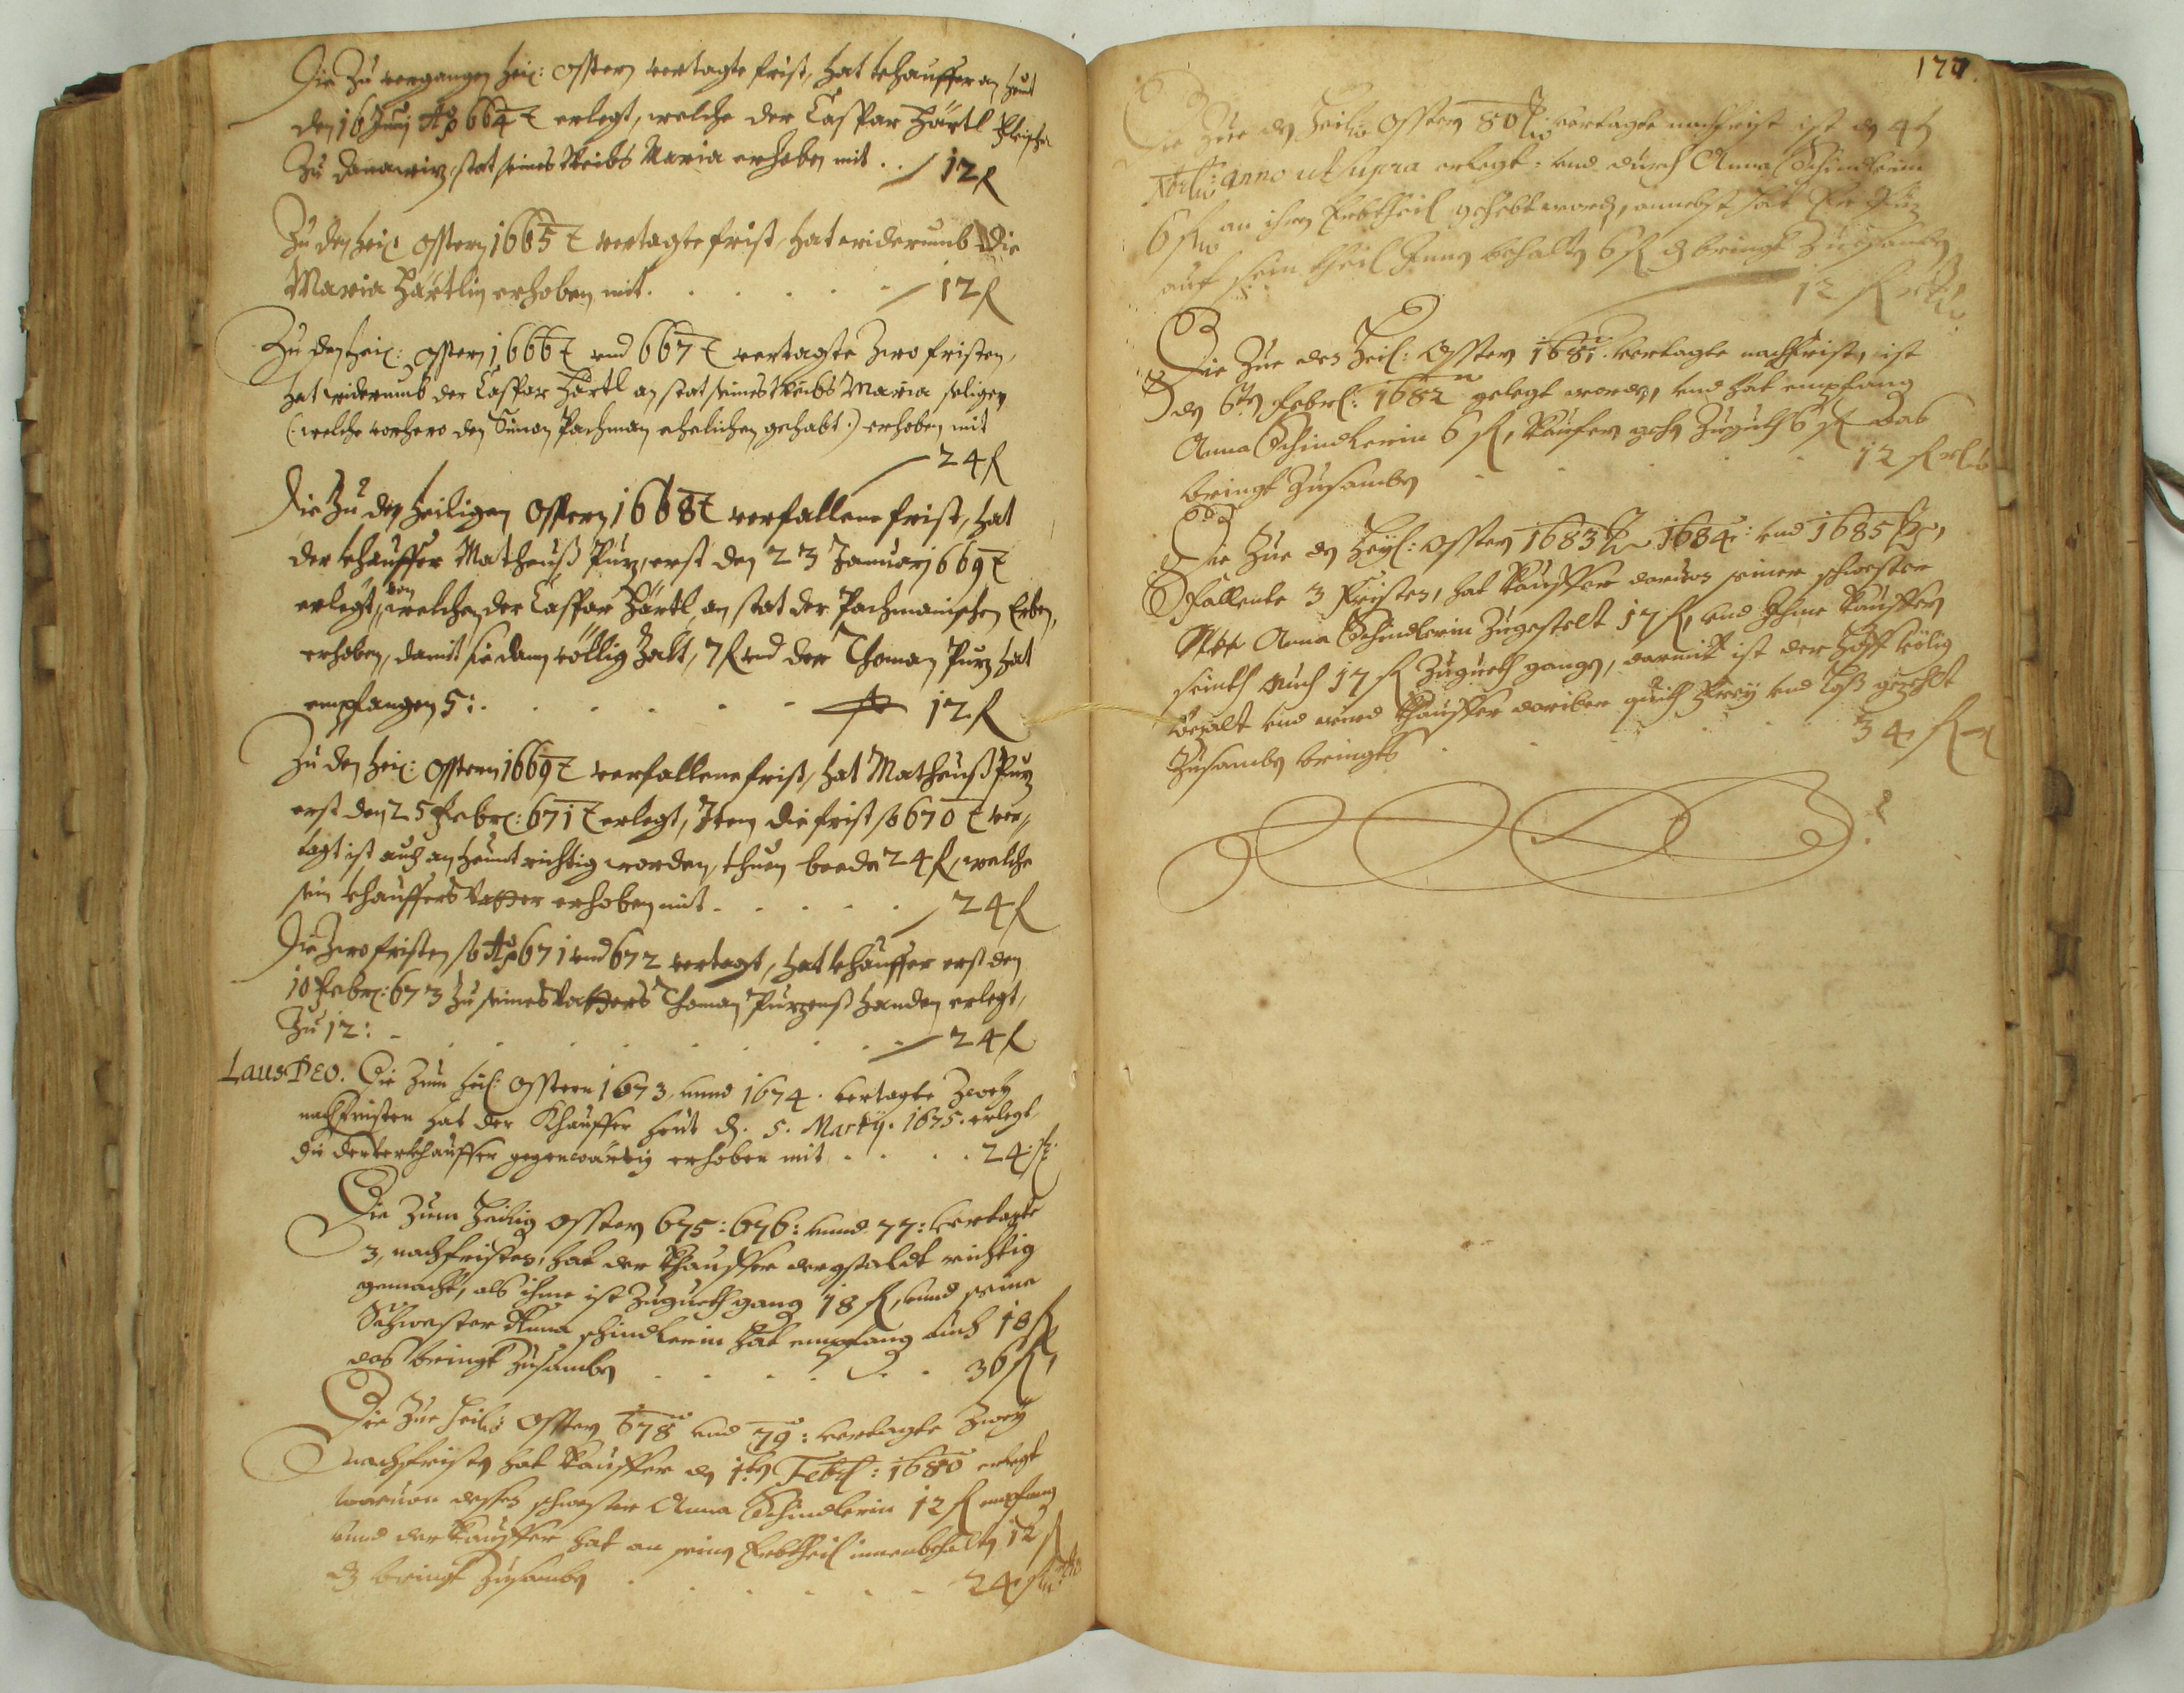 Die Zu vergangen heil: Ostern vertagte frist, hat khauffer an heut
den 16 Junj Ao 664 t erlegt, welche der Caspar Härtl fleischer
Zu Danawiz, stat seines Weibs Maria erhoben mit . . 12 f
Zu den heil Ostern 1665 t vertagte frist, hat widerumb die
Maria Härtlin erhoben mit . . . . . 12 f
Zu den heil: Ostern 1666 t vnd 667 t vertagte Zwo fristen,
hat widerumb der Caspar Härtl an stat seines Weibs Maria seligen
(: welche vorhero den Simon Pachman ehelichen gehabt :) erhoben mit
24 f
Die Zu den Heiligen Ostern 1668 t verfallene frist, hat
der khauffer Matheuß Purz, erst den 23 Januarj 669 t
erlegt, von welchen der Caspar Härtl an stat der Pachmanischen Erben,
erhoben, damit sie dann völlig Zalt, 7 f vnd der Thoman Purz hat
empfangen 5 : . . . . . . 12 f
Zu den heil: Ostern 1669 t verfallene frist, hat Matheuß Purz
erst den 25 Febr: 671 t erlegt, Item die frist so 670 t ver„
tagt ist auch an heunt richtig worden, thuen beede 24 f, welche
sein khauffers Vatter erhoben mit . . . . . 24 f
Die Zwo fristen so Ao 671 vnd 672 vertagt, hat khauffer erst den
10 Febr: 673 Zu seines Vatters Thoman Purzenß handen erlegt,
Zu 12 : . . . . . . . . 24 f
Laus DEO. Die Zum heil: Ostern 1673, unnd 1674. vertagte Zwey
nachfristen hat der Khauffer heut d. 5. Martij. 1675. erlegt,
die der verkhauffer gegenwärtig erhoben mit . . . . 24 f
Die Zum Heilig Ostern 675 : 676 : vnnd 77 : vertagte
3, nachfristen, hat der Khauffer dergstaldt richtig
gemacht, als ihme ist Zugueth gang 18 f, vnnd seine
Schwester Anna Schindlerin hat empfang auch 18 f
das bringt Zusamben . . . . . 36 f,
Die Zue heil: Ostern 678 vnd 79 : vertagte Zwey
nachfristen hat Kauffer den 1ten Febr: 1680 erlegt
worvon dessen schwester Anna Schindlerin 12 f empfang
vnnd der Kauffer hat an seinen Erbtheil innenbehalten 12 f
dz bringt Zusamben . . . . . 24 f
177.
Die Zue den Heil: Ostern 80 vertagte nachfrist ist den 4t
anno ut supra erlegt: vnd durch Anna Schindlerin
6 f an ihren Erbtheil gehebt worden, annebst hat
auf sein theil Innen behalten 6 f dz bringt Zusamben
12 f
Die Zue den Heil: Ostern 1681. vertagte nachfrist, ist
den 6ten Febr: 1682 gelegt worden, vnd hat empfang
Anna Schindlerin 6 f, Kaufern gehen Zuguth 6 f das
bringt Zusamben . . . . 12 f
Die Zue den Heyl: Ostern 1683 1684 : vnd 1685
Fallente 3 Fristen, hat Kauffer darvon seiner schwester
Anna Schindlerin Zugestelt 17 f, vnd Ihme Kauffern
seinth auch 17 f Zugueth gangen, darmit ist der Hoff völig
bezalt vnd wird Khauffer darüber quith Frey vnd Loß gezehlt
Zusamben bringts . . . . . 34 f